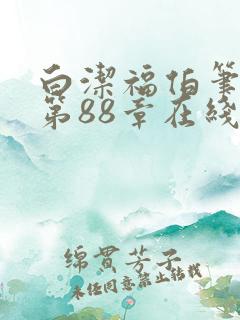 白潔福伯筆
第88章在线
绵貫芳子
未经同意禁止转载